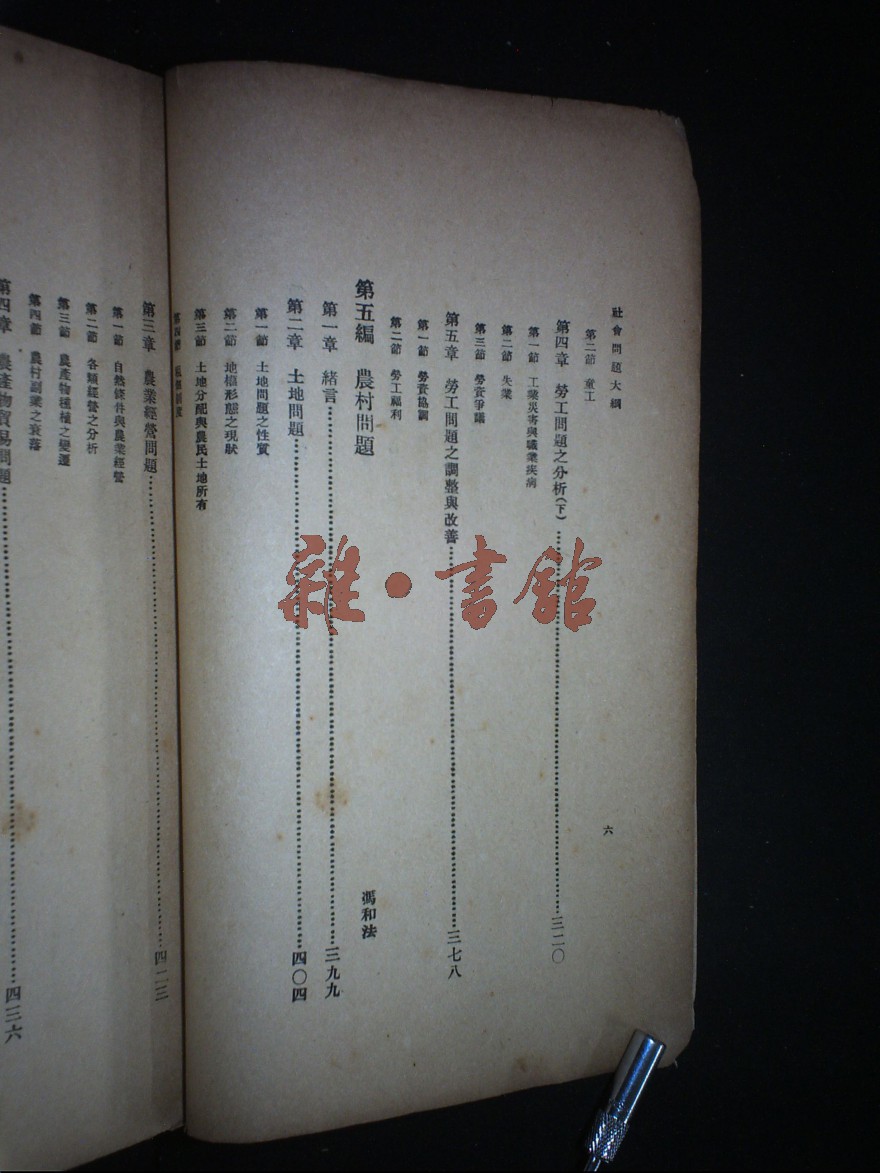 社會問題大綱
六
第二節 童工
第四章 勞工問題之分析(下)…………三二〇
第一節 工業災害與職業疾病
第二節 失業
第三節 勞資爭議
第五章 勞工問題之調整與改善…………三七八
第一節 勞資協調
第二節 勞工福利
第五編 農村問題 馮和法
第一章 緒言…………三九九
第二章 土地問題…………四〇四
第一節 土地問題之性質
第二節 地權形態之現狀
第三節 土地分配與農民土地所有
第四節
第三章 農業經營問題…………四二三
第一節 自然條件與農業經營
第二節 各類經營之分析
第三節 農產物種植之變遷
第四節 農村副業之衰落
第四章 農產物貿易問題…………四三六
雜·書館